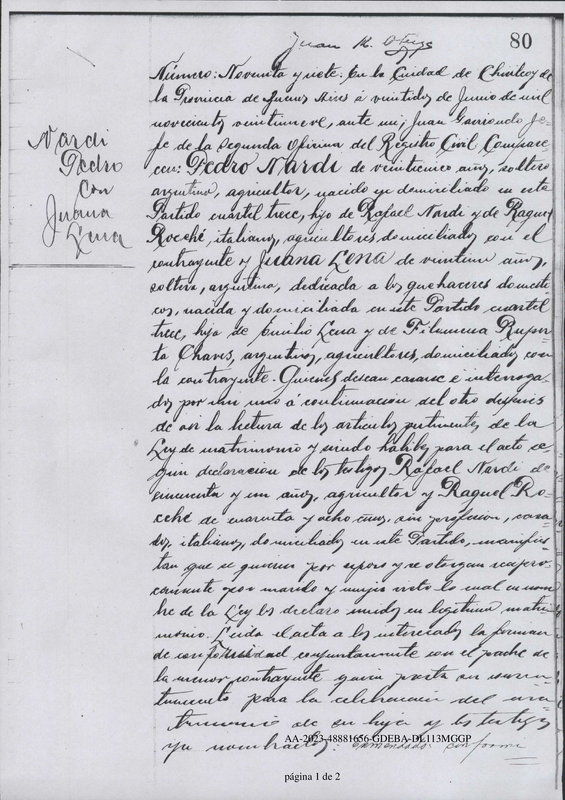 80
Nardi
Pedro
con
Juana
Lena
Número: Noventa y siete. En la Ciudad de Chivilcoy de
la Provincia de Buenos Aires á veintidos de Junio de mil
novecientos veintinueve, ante mi, Juan Garriondo Je-
fe de la Segunda Oficina del Registro Civil Compare-
cen: Pedro Nardi de veinticinco años, soltero
argentino, agricultor, nacido y domiciliado en este
Partido cuartel trece, hijo de Rafael Nardi y de Raquel
Rocché, italianos, agricultores, domiciliados con el
contrayente y Juana Lena de veintiun años,
soltera, argentina, dedicada a los quehaceres domesti-
cos, nacida y domiciliada en este Partido cuartel
trece, hija de Emilio Lena y de Filomena Ruper-
ta Chaves, argentinos, agricultores, domiciliados con
la contrayente. Quienes desean casarse e interroga-
dos por mi uno á continuacion del otro despues
de oir la lectura de los articulos pertinentes de la
Ley de matrimonio y siendo habiles para el acto se-
gun declaracion de los testigos Rafael Nardi de
cincuenta y un años, agricultor y Raquel Ro-
cché de cuarenta y ocho años, sin profesion, casa-
dos, italianos, domiciliados en este Partido, manifies-
tan que se quieren por esposos y se otorgan recipro-
camente por marido y mujer visto lo cual en nom-
bre de la Ley los declaro unidos en legitimo matri-
monio. Leida el acta a los interesados la firman
de conformidad conjuntamente con el padre de
la menor contrayente quien presta su consen-
timiento para la celebracion del ma-
trimonio de su hija y los testigos
ya nombrados. enmendado: conforme
AA-2023-48881656-GDEBA-DL113MGGP
página 1 de 2